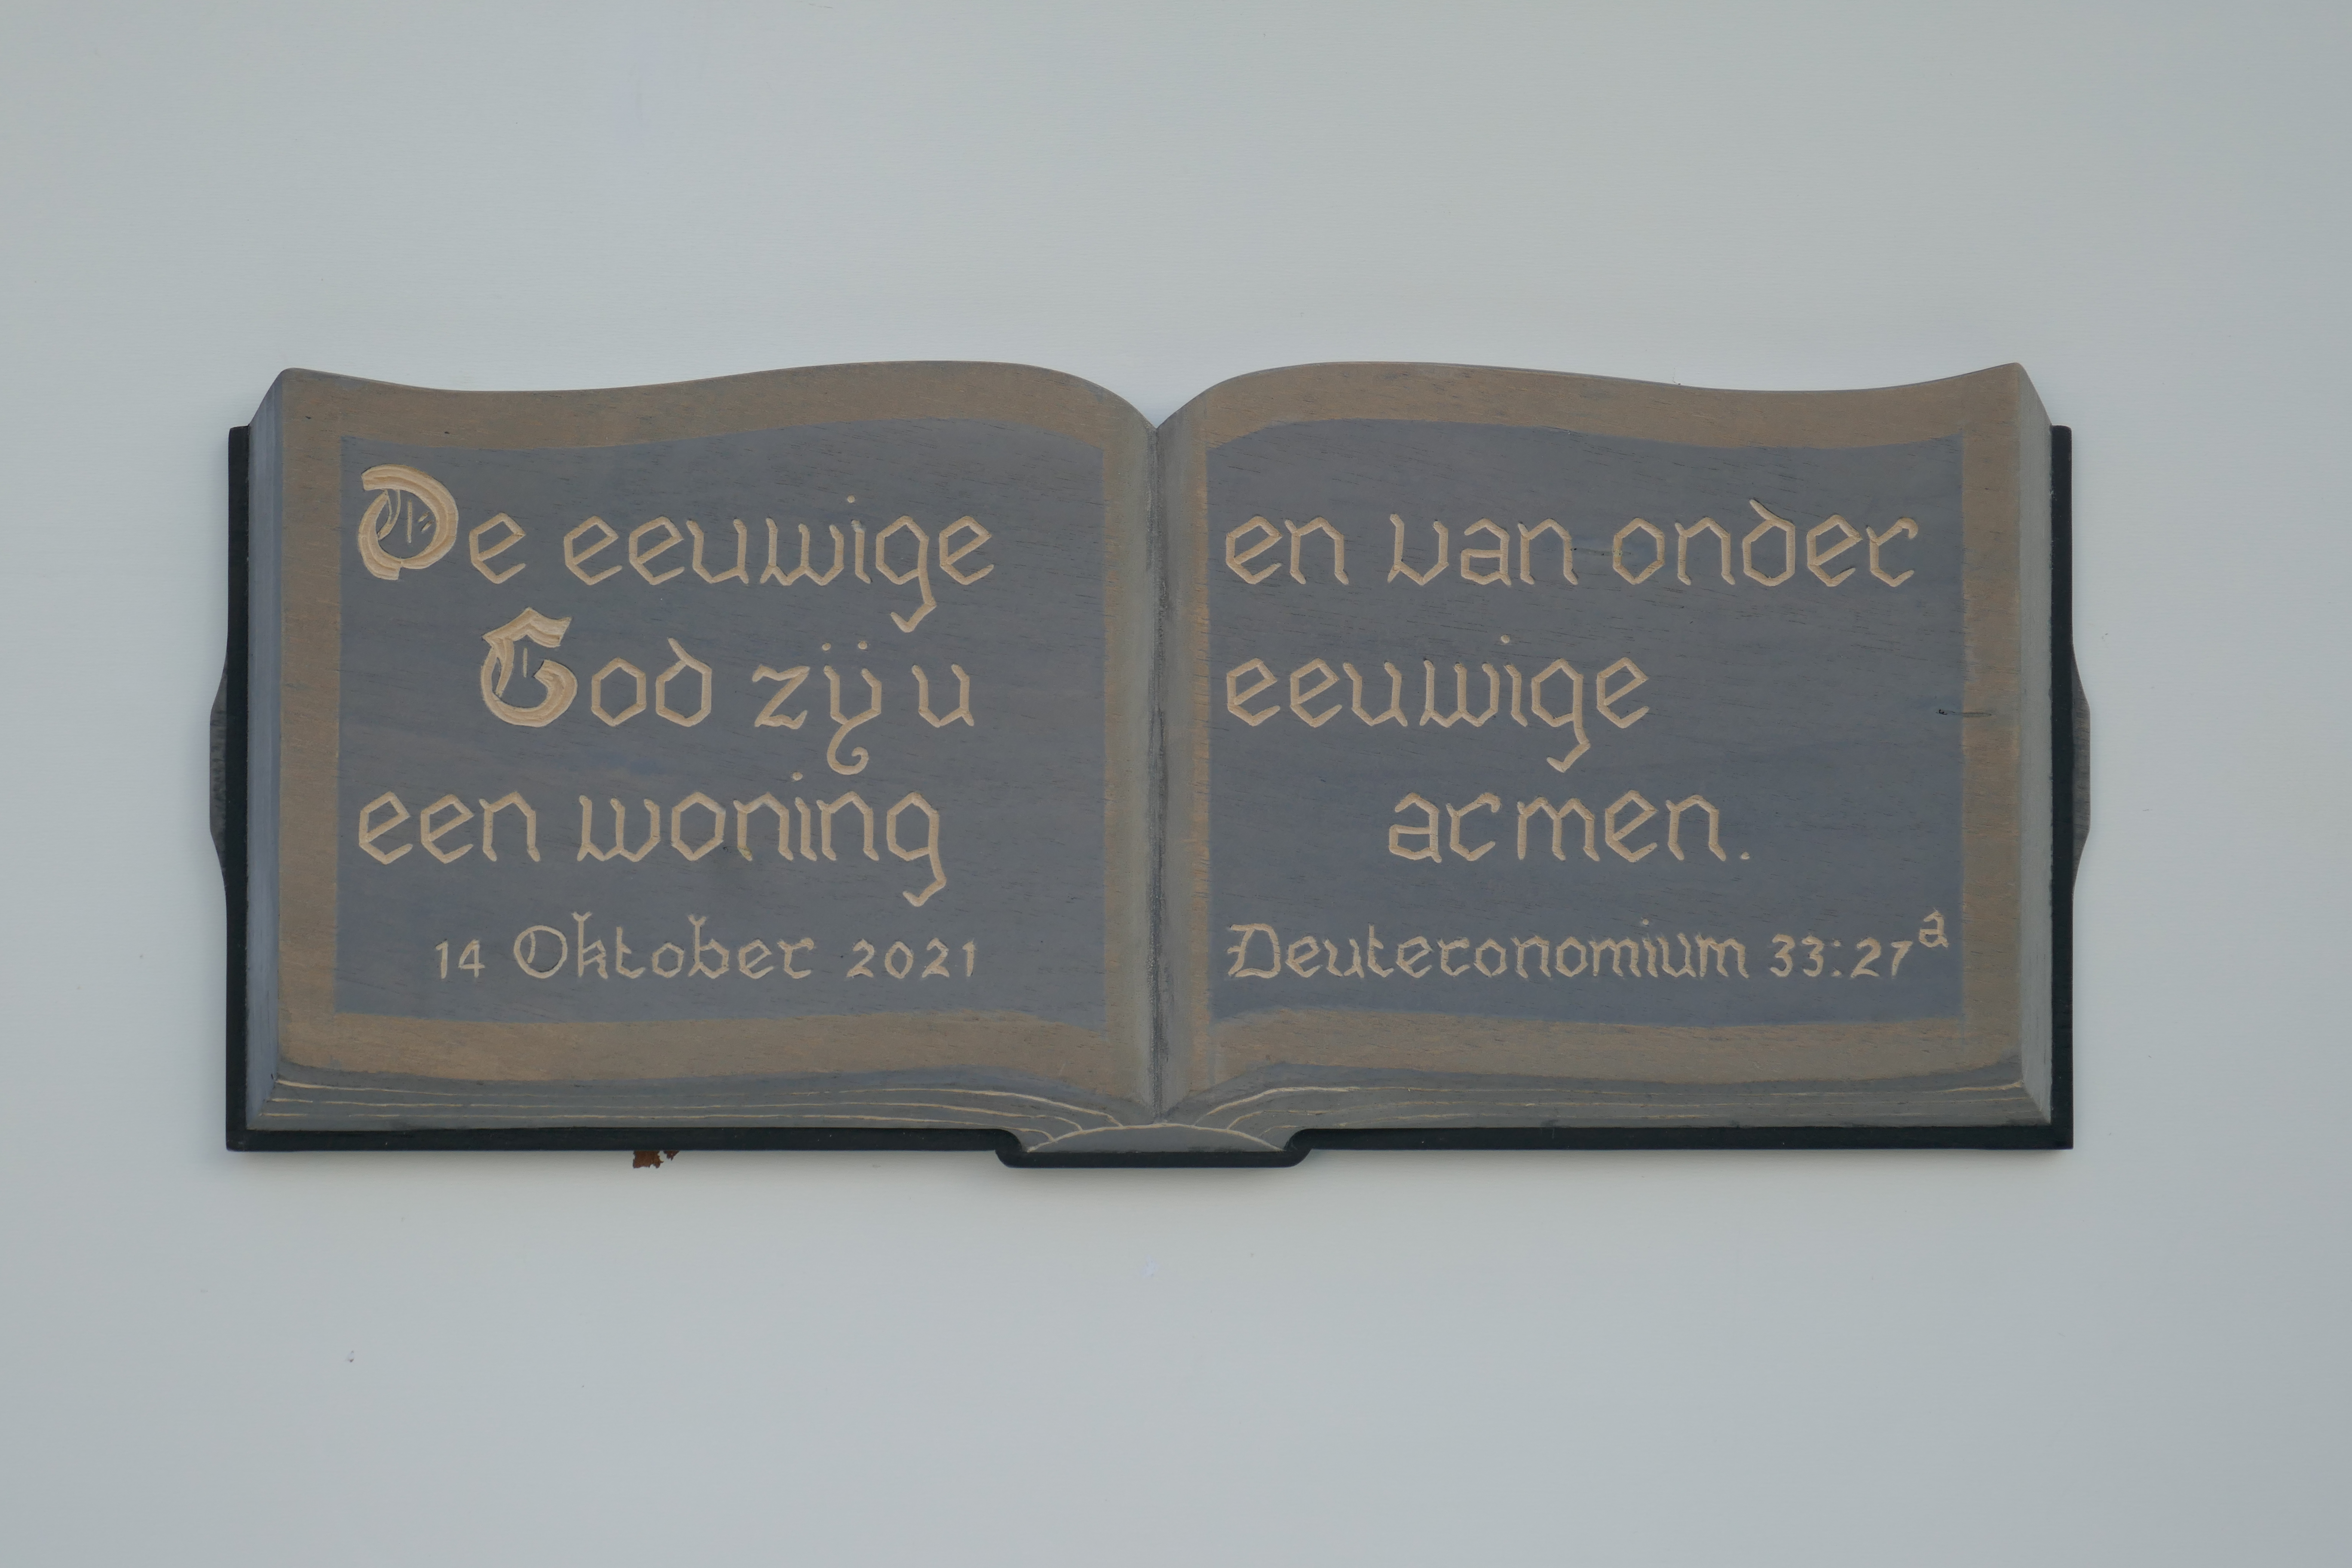 De eeuwige
God zij u
een woning
14 Oktober 2021
en van onder
eeuwige
armen.
Deuteronomium 33:27a